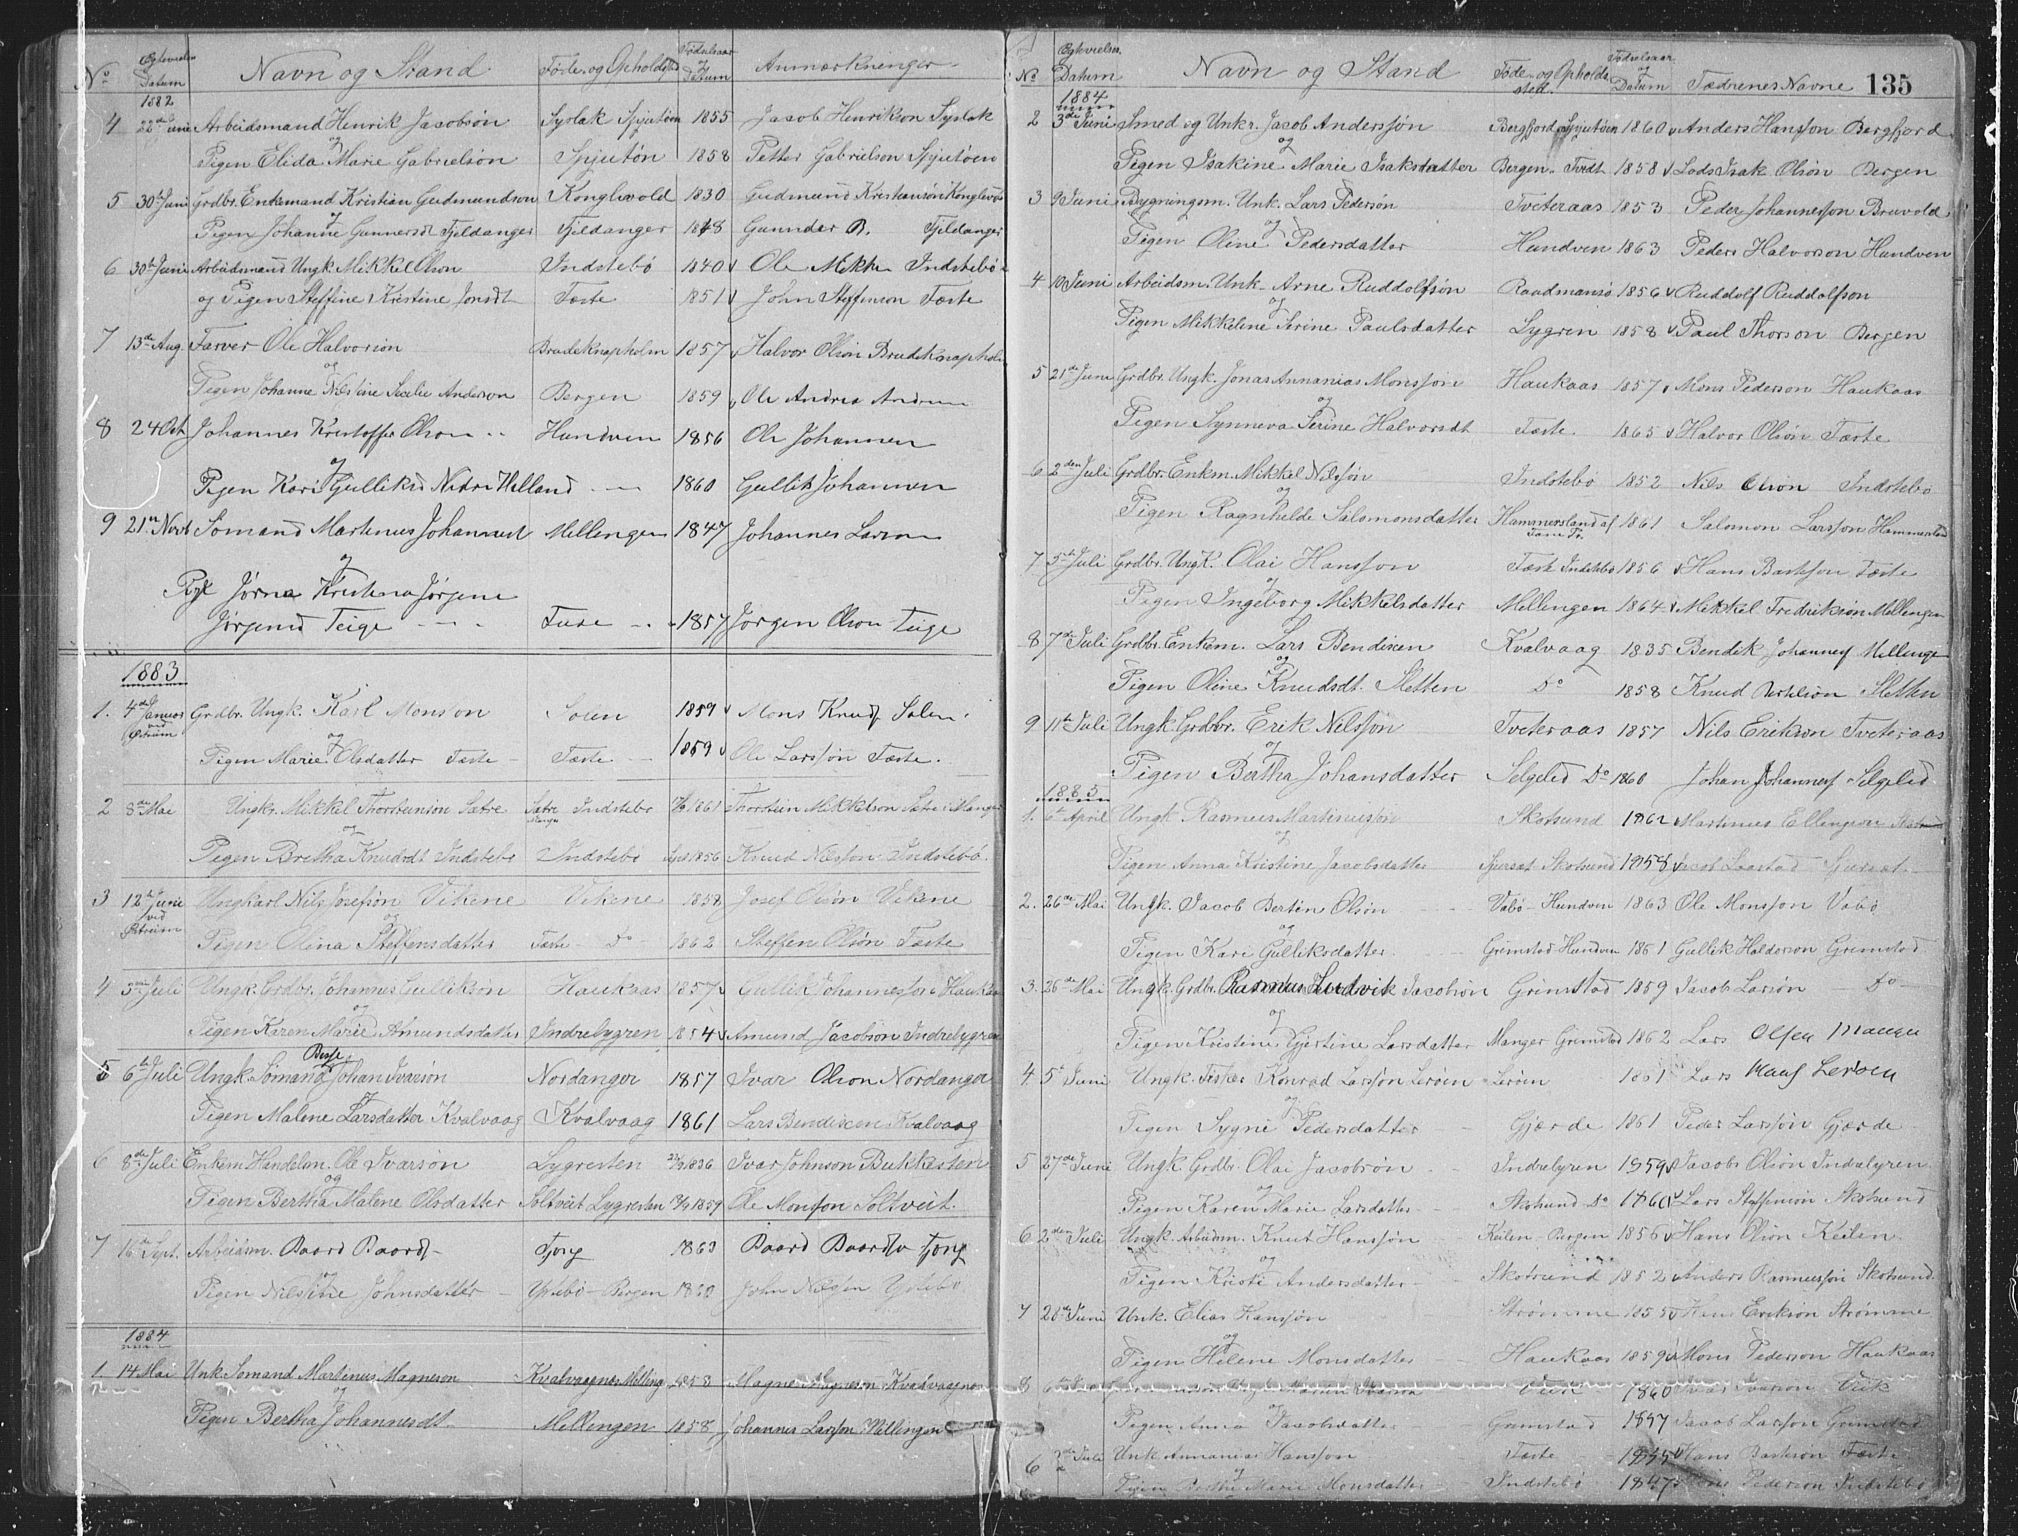 No Egtevielses Datum Navn og Stand Føde- og Opholdsted Fødselsaar og Datum Anmærkninger
1882
4 22de Juni Arbeidsmand Henrik Jacobsøn Syslak Spjutøen 1855 Jacob Henrikson Syslak
og
Pigen Elida Marie Gabrielsøn Spjutøn 1858 Petter Gabrielson Spjutøen
5 30te Juni Grdbr. Enkemand Kristian Gudmundson Konglevold 1830 Gudmund Kristiansøn Konglevo
og
Pigen Johanne Gunnersdt Fjeldanger Fjeldanger 1848 Gunnder B. Fjeldanger
6 30te Juni Arbeidsmand Ungk. Mikkel Olson Indstebø 1840 Ole Mikk Indstebø
og Pigen Steffine Kristine Jonsdt Fæste 1851 John Steffenson Fæste
7 13de Aug. Farver Ole Halvorson Brudeknapholm 1857 Halvor Olsøn Brudeknaphol
og
Pigen Johanne Nilstine Secilie Anderson Bergen 1859 Ole Andrea
8 24 Oct Johannes Kristoffer Olson Hundven 1856 Ole Johannen
og
Pigen Kari Gulliksd Nedre Helland 1860 Gullik Johannen
9 21de Novb Sømand Martinus Johannest Mellingen 1847 Johannes Larsen
og
Pige Jørna Kristina Jørgene
Jørgensd Teige 1857 Jørgen Olson Teige
1883
1. 4de Januar Grdbr. Ungk. Karl Monson Solen 1859 Mons Knuds Solen.
ved Østrum
og
Pigen Marie Olsdatter Fæste Fæste 1859 Ole Larsson Fæste.
2 8de Mai Ungkr. Mikkel Thorsteinsøn Sætre Sætre Indstebø 1861 Thorstein Mikkelson Sætre i Manger
og
Pigen Bretha Knudsdt Indstebø Indstebø 1856 Knud Nilsson Indstebø.
3 12te Juni Ungkarl Nils Josefsøn Vikene Vikene 1858 Josef Olsøn Vikene
ved Østrum
og
Pigen Olina Steffensdatter Fæste Do 1862 Steffen Olsøn Fæste
4 5te Juli Ungk. Grdbr. Johannes Gullikson Haukaas 1857 Gullik Johannesson Haukaas
og
Pigen Karen Marie Amundsdatter Indrelygren 1854 Amund Jacobson Indrelygren
5 6te Juli Ungk. Sømand Johan Ivarsøn Nordanger 1857 Ivar Olson Nordanger
og
Pigen Malene Larsdatter Kvalvaag Kvalvaag 1861 Lars Bendiксen Kvalvaag
6 8de Juli Enkem. Handelm. Ole Ivarsøn Lygresten 1836 Ivar Johnson Bukkesten
og
Pigen Bertha Malene Olsdatter Soltveit Lygresten 1859 Ole Monsson Soltveit.
7 16de Sept. Arbeidsm. Baard Baards Tjong 1863 Baard Baards Tjong
og
Pigen Nilsine Johnsdatter Ystebø - Bergen 1860 John Nilsen Ystebø
1884
1. 14 Mai Unk. Sømand Martinus Magneson Kvalvaagnes Melling 1858 Magne Magneson Kvalvaagnes
og
Pigen Bertha Johannesdt Mellingen 1858 Johannes Larsson Mellingen
No Egtevielses Datum Navn og Stand Føde- og Opholdssted. Fødselsaar og Datum Fædrenes Navne 135
1884
2 3de Juni Smed og Unkr. Jacob Anderssøn Bergfjord Spjutøen 1860 Anders Hansson Bergfjord
og
Pigen Isakine Marie Isaksdatter Bergen Tvedt 1858 Lods Isak Olsøn Bergen
3 9 Juni Bygningsm. Unk. Lars Pedersøn Tveteraas 1853 Peder Johannesson Bruvold
og
Pigen Oline Pedersdatter Hundven 1863 Peder Halvorson Hundven
4 10 Juni Arbeidsm. Unk. Arne Ruddolfsøn Raadmansø 1856 Ruddolf Ruddolfson
og
Pigen Mikkeline Serine Paulsdatter Lygren 1858 Paul Thorson Bergen
5 21de Juni Grdbr. Ungk. Jonas Annanias Monssøn Haukaas 1857 Mons Pederson Haukaas
og
Pigen Synneva Serine Halvorsdt Fæste 1865 Halvor Olsøn Fæste
6 2den Juli Grdbr. Enkm. Mikkel Nilssøn Indstebø 1852 Nils Olson Indstebø
og
Pigen Ragnhilde Salomonsdatter Hammersland af 1861 Salomon Larsson Hammersland
7 5te Juli Grdbr. Ungk. Olai Hansson Fæste Indstebø 1856 Hans Bartson Fæste
og
Pigen Ingeborg Mikkelsdatter Mellingen 1864 Mikkel Fredrikson Mellingen
8 7de Juli Grdbr. Enkem. Lars Bendixen Kvalvaag 1835 Bendik Johannes Mellinge
og
Pigen Oline Knudsdt. Sletten Do 1858 Knud Bertelson Sletten
9 11te Juli Ungk. Grdbr. Erik Nilssøn Tveteraas 1857 Nils Erikson Tveteraas
og
Pigen Bertha Johansdatter Selgelid Do 1860 Johan Johannes Selgelid
1885
1. 6te April Ungk. Rasmus Martinussøn Skotsund 1862 Martinus Ellingson
og
Pigen Anna Kristine Jacobsdatter Sjursæt Skotsund 1858 Jacob Sjursæt
2. 26de Mai Ungk. Jacob Bertin Olsøn Vabø - Hundven 1863 Ole Monsson Vabø
og
Pigen Kari Gulliksdatter Grimstad Hundven 1861 Gullik Haldorson Grimstad
3. 26de Mai Ungk. Grdbr. Rasmus Ludvik Jacobsøn Grimstad 1859 Jacob Larsøn Do
og
Pigen Kristine Gjertine Larsdatter Manger Grimstad 1862 Lars Olsen Manger
4 5te Juni Ungk. Fisker Konrad Larsson Lerøen Lerøen 1861 Lars Lerøen
og
Pigen Sygni Pedersdatter Gjærde 1861 Peder Larssøn Gjærde
5 27de Juni Ungk. Grdbr. Olai Jacobsøn Indrelyren 1859 Jacob Olsøn Indrelyren
og
Pigen Karen Marie Larsdatter Skotsund Do 1860 Lars Steffensøn Skotsund
6 2den Juli Ungk. Arbeidsm. Knut Hanssøn Keilen Bergen 1856 Hans Olson Keilen
og
Pigen Kristi Andersdatter Skotsund 1852 Anders Rasmussøn Skotsund
7 26de Juni Unk. Elias Hanssøn Strømme 1855 Hans Erikson Strømme
og
Pigen Helene Monsdatter Haukaas 1859 Mons Pederson Haukaas
8 6te 1860 Ivar Ivarson Veik
Pigen Anna Jacobsdatter Grimstad 1857 Jacob Larsson Grimstad
6 2de Juli Unk. Annanias Hansson Fæste Hans Bartson Fæste
og
Pigen Berthe Marie Monsdatter Indstebø 1847 Mons Pederson Indstebø